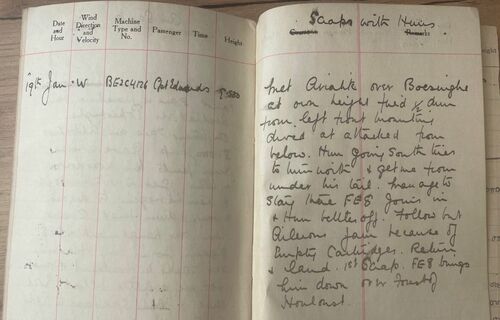 Date and Hour
Wind Direction and Velocity
Machine Type and No.
Passenger
Time
Height
19th Jan W BE2C4126 Cpt Edwards 9.500
Scraps with Huns
Course
Remarks
Met Aviatik over Boesinghe
at own height fired ½ drum
from left front mounting
dived at attacked from
below. Hun going South tries
to turn North & get me from
under his tail. Manage to
stay there FE8 Joins in
& Hun belts off. Follow but
Ailerons Jam because of
Empty Cartridges. Return
& land. 1st Scrap. FE8 brings
him down over Forest of
Houloust.